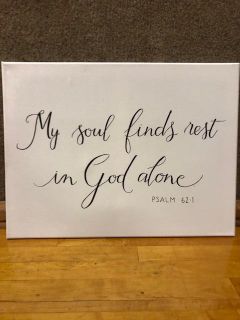 My soul finds rest
in God alone
PSALM 62:1